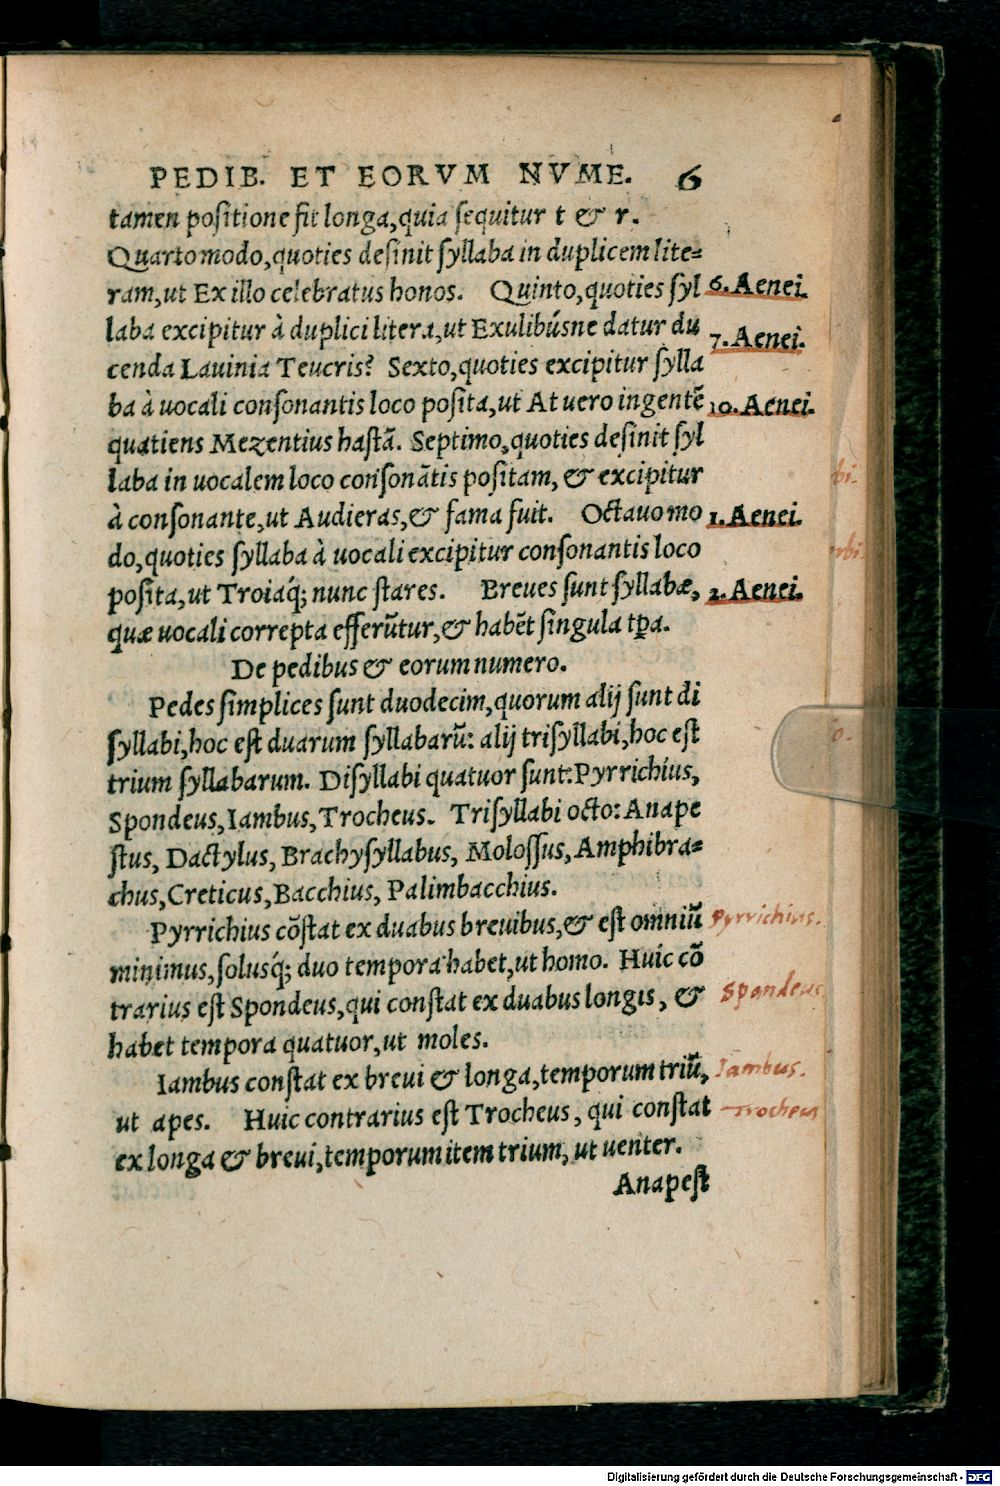 PEDIB. ET EORVM NVME. 6
tamen positione fit longa, quia sequitur t & r.
Quarto modo, quoties desinit syllaba in duplicem lite=
ram, ut Ex illo celebratus honos. Quinto, quoties syl
6. Aenei.
laba excipitur à duplici litera, ut Exulibúsne datur du
7. Aenei.
cenda Lauinia Teucris? Sexto, quoties excipitur sylla
ba à uocali consonantis loco posita, ut At uero ingentē
10. Aenei.
quatiens Mezentius hastā. Septimo, quoties desinit syl
laba in uocalem loco consonātis positam, & excipitur
à consonante, ut Audieras, & fama fuit. Octauo mo
1. Aenei.
do, quoties syllaba à uocali excipitur consonantis loco
posita, ut Troiaq́; nunc stares. Breues sunt syllabæ,
2. Aenei.
quæ uocali correpta efferūtur, & habēt singula tpa.
De pedibus & eorum numero.
Pedes simplices sunt duodecim, quorum alij sunt di
syllabi, hoc est duarum syllabarū: alij trisyllabi, hoc est
trium syllabarum. Disyllabi quatuor sunt: Pyrrichius,
Spondeus, Iambus, Trocheus. Trisyllabi octo: Anape
stus, Dactylus, Brachysyllabus, Molossus, Amphibra=
chus, Creticus, Bacchius, Palimbacchius.
Pyrrichius cōstat ex duabus breuibus, & est omniū
Pyrrichius.
minimus, solusq́; duo tempora habet, ut homo. Huic cō
trarius est Spondeus, qui constat ex duabus longis, &
Spondeus
habet tempora quatuor, ut moles.
Iambus constat ex breui & longa, temporum triū,
Iambus.
ut apes. Huic contrarius est Trocheus, qui constat
Trocheus
ex longa & breui, temporum item trium, ut uenter.
Anapest
Digitalisierung gefördert durch die Deutsche Forschungsgemeinschaft - DFG